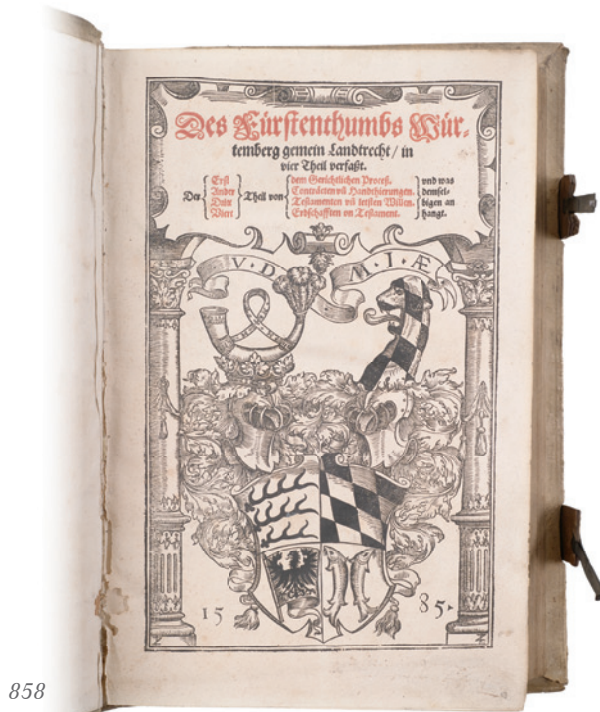 Des Fürstenthumbs Wür-
temberg gemein Landtrecht / in
vier Theil verfaßt.
Der Erst Ander Drit Viert Theil von dem Gerichtlichen Proceß. Conträcten vñ Handthierungen. Testamenten vñ letsten Willen. Erbschafften on Testament. vnd was demsel- bigen an hangt.
V · D · M · I · Æ
15 85.
858